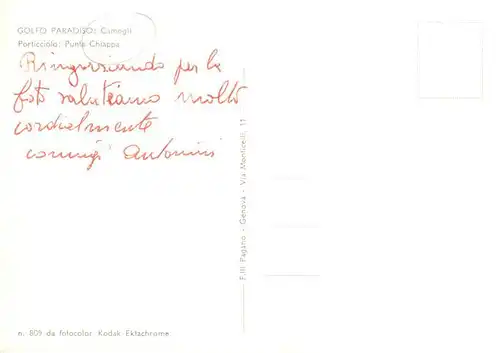 GOLFO PARADISO: Camogli
Porticciolo: Punta Chiappa
Ringraziando per le
foto salutiamo molto
cordialmente
coniugi Antonini
F.lli Pagano - Genova - Via Monticelli, 11
n. 809 da fotocolor Kodak Ektachrome